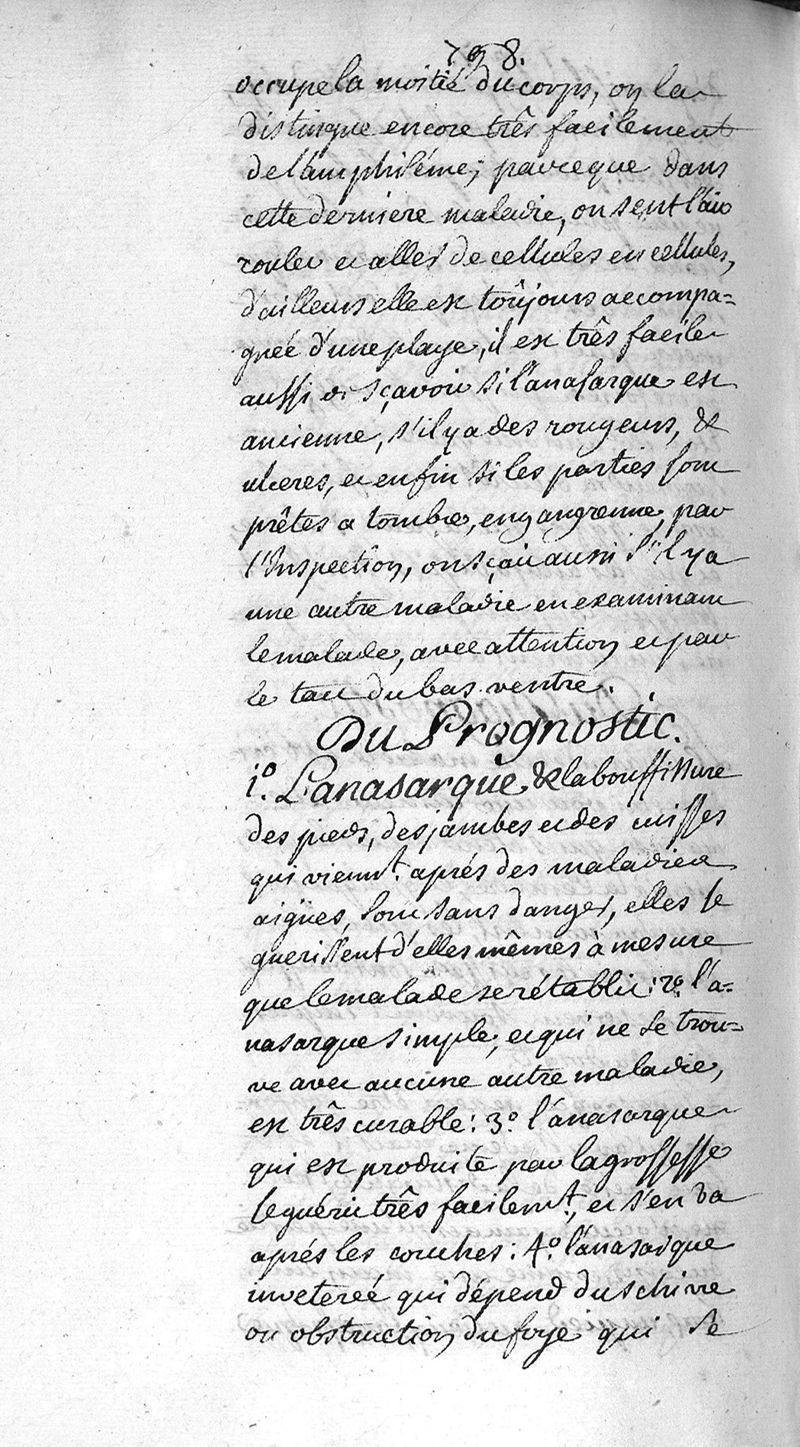 798.
occupe la moitié du corps, on la
distingue encore três facilement
de l'amphiséme; parceque dans
cette derniere maladie, on sent l'air
rouler et aller de cellules en cellules,
d'ailleurs elle est toûjours accompa=
gnée d'une playe, il est três facile
aussi de sçavoir si l'anasarque est
ancienne, s'il y a des rougeurs, &
ulceres, et enfin si les parties sont
prêtes a tomber, en gangrenne, par
l'Inspection, on sçait aussi s'il y a
une autre maladie en examinant
le malade, avec attention et par
le tac du bas ventre.
Du Prognostic.
1º. L'anasarque & la bouffissure
des pieds, des jambes et des cuisses
qui vienn.t aprés des maladies
aigües, sont sans danger, elles se
guerissent d'elles mêmes à mesure
que le malade se rétablit: 2º. l'a=
nasarque simple, et qui ne se trou=
ve avec aucune autre maladie,
est três curable: 3º. l'anasarque
qui est produite par la grossesse
se guérit três facilem.t, et s'en va
aprés les couches: 4º. l'anasarque
inveterée qui dépend du schirre
ou obstruction du foye qui se